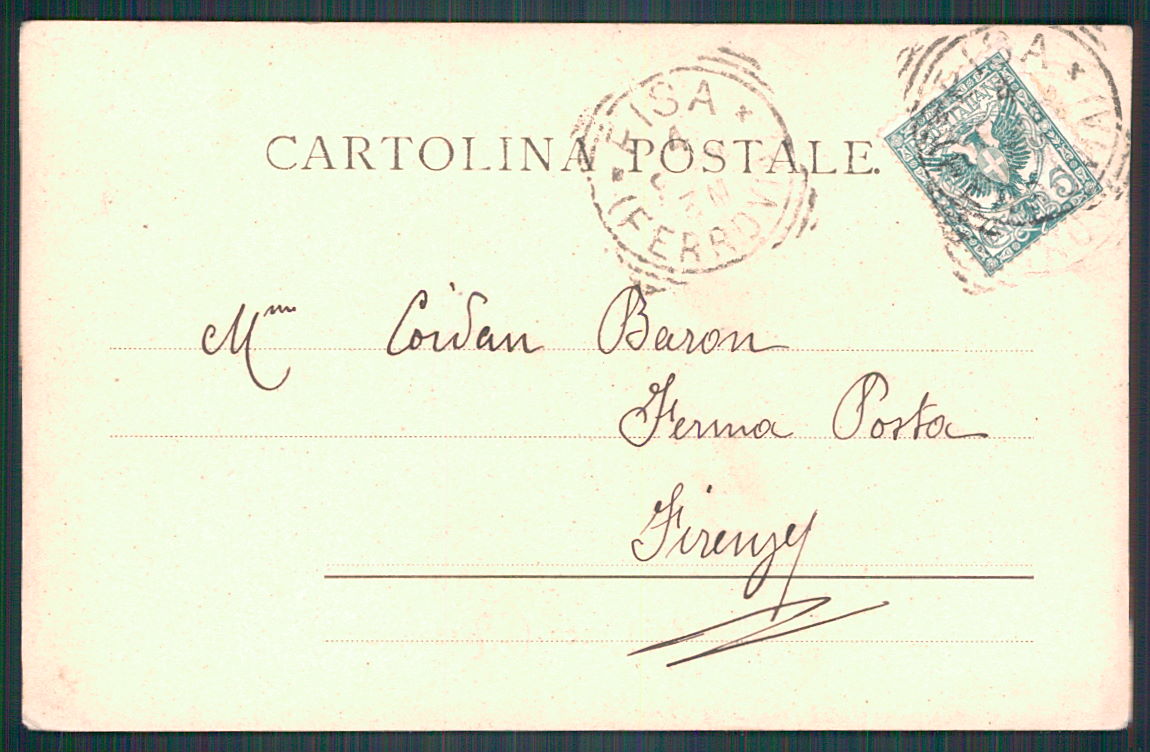 CARTOLINA POSTALE.
PISA
(FERROVIA)
5
Mme Coidan Baron
Ferma Posta
Firenze